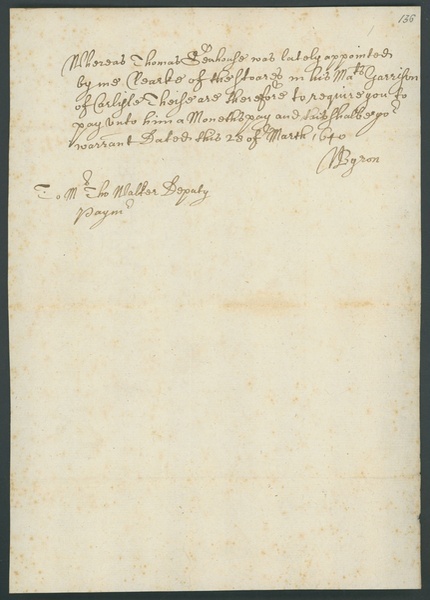 136
Whereas Thomas Senhouse was lately appointed
by me Clearke of the Stoares in his Mats Garrison
of Carlisle Theise are therefore to require you to
pay unto him a Moneths pay and this shalbe yor
warrant Dated this 28 of March 1640
Byron
To Mr Tho Walker Deputy
Paymr